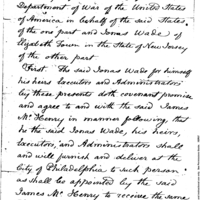 Department of War of the United States
of America in behalf of the said States
of the one part and Jonas Wade of
Elizabeth Town in the State of New Jersey
of the other part.
First The said Jonas Wade for himself
his heirs Executors and Administrators
by these presents doth covenant promise
and agree to and with the said James
McHenry in manner following, that
he the said Jonas Wade, his heirs,
Executors, and Administrators shall
and will furnish and deliver at the
City of Philadelphia to such person
as shall be appointed by the said
James McHenry to receive the same